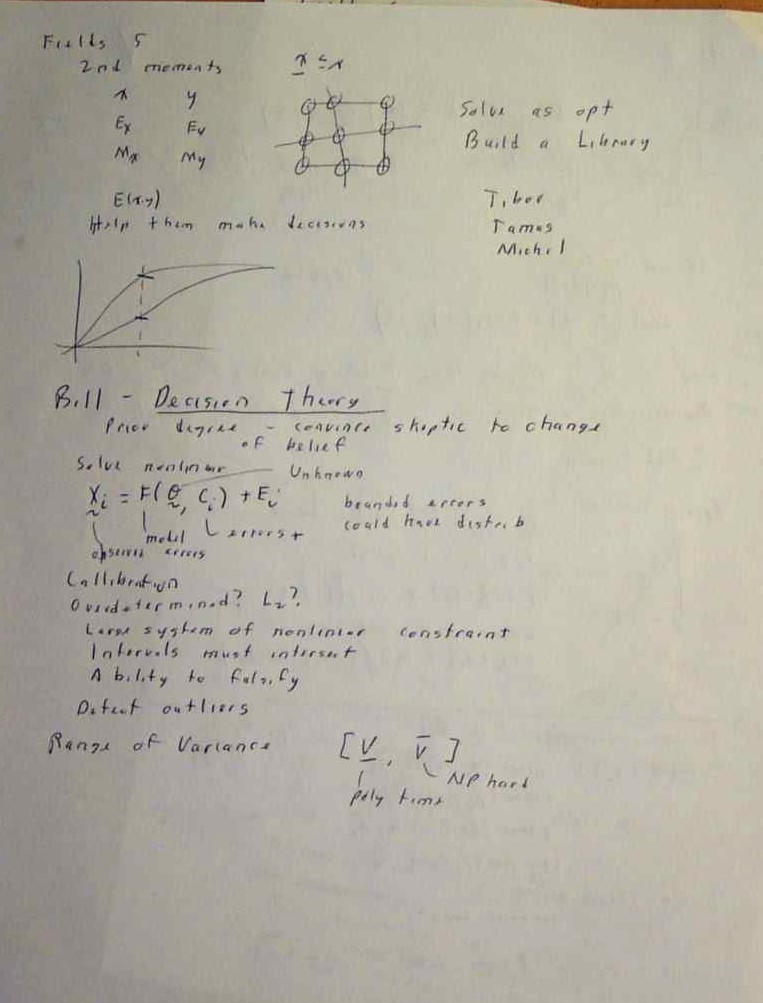 Fields 5
2nd moments
x ≤ x
x y
Ex Ey
Mx My
E(x·y)
Help them make decisions
Solve as opt
Build a Library
Tibor
Tamas
Michel
Bill - Decision Theory
Prior degree - convince skeptic to change
of belief
Solve nonlinear Unknown
Xi = F(θ, Ci) + Ei
model errors +
observed errors
bounded errors
could have distrib
Callibration
Overdetermined? L2?
Large system of nonlinear constraint
Intervals must intersect
Ability to falsify
Detect outliers
Range of Variance [V, V̄]
NP hard
poly time